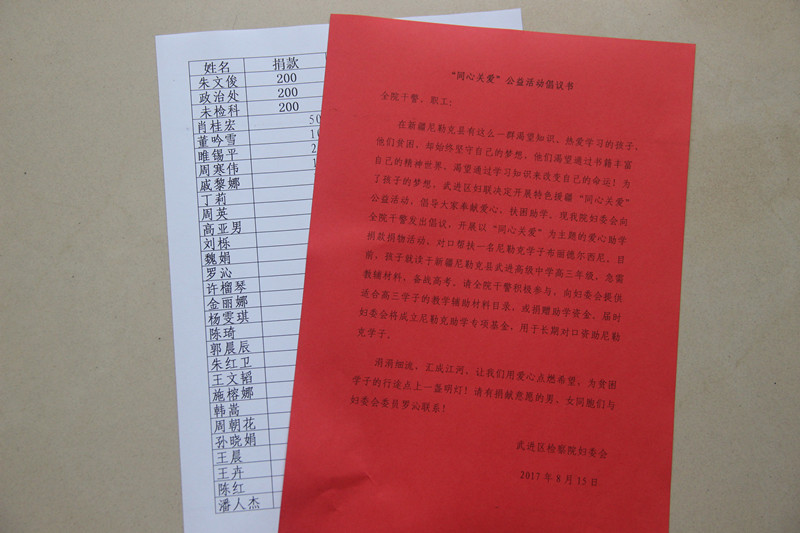 姓名 捐款
朱文俊 200
政治处 200
未检科 200
肖桂宏 50
董吟雪 10
睢锡平 2
周寒伟 1
戚黎娜
丁莉
周英
高亚男
刘栎
魏娟
罗沁
许榴琴
金丽娜
杨雯琪
陈琦
郭晨辰
朱红卫
王文韬
施榕娜
韩嵩
周朝花
孙晓娟
王晨
王卉
陈红
潘人杰
“同心关爱”公益活动倡议书
全院干警、职工：
在新疆尼勒克县有这么一群渴望知识、热爱学习的孩子，
他们贫困，却始终坚守自己的梦想，他们渴望通过书籍丰富
自己的精神世界，渴望通过学习知识来改变自己的命运！为
了孩子的梦想，武进区妇联决定开展特色援疆“同心关爱”
公益活动，倡导大家奉献爱心、扶困助学。现我院妇委会向
全院干警发出倡议，开展以“同心关爱”为主题的爱心助学
捐款捐物活动，对口帮扶一名尼勒克学子布丽德尔西尼。目
前，孩子就读于新疆尼勒克县武进高级中学高三年级，急需
教辅材料，备战高考。请全院干警积极参与，向妇委会提供
适合高三学子的教学辅助材料目录，或捐赠助学资金，届时
妇委会将成立尼勒克助学专项基金，用于长期对口资助尼勒
克学子。
涓涓细流，汇成江河，让我们用爱心点燃希望，为贫困
学子的行途点上一盏明灯！请有捐献意愿的男、女同胞们与
妇委会委员罗沁联系！
武进区检察院妇委会
2017年8月15日